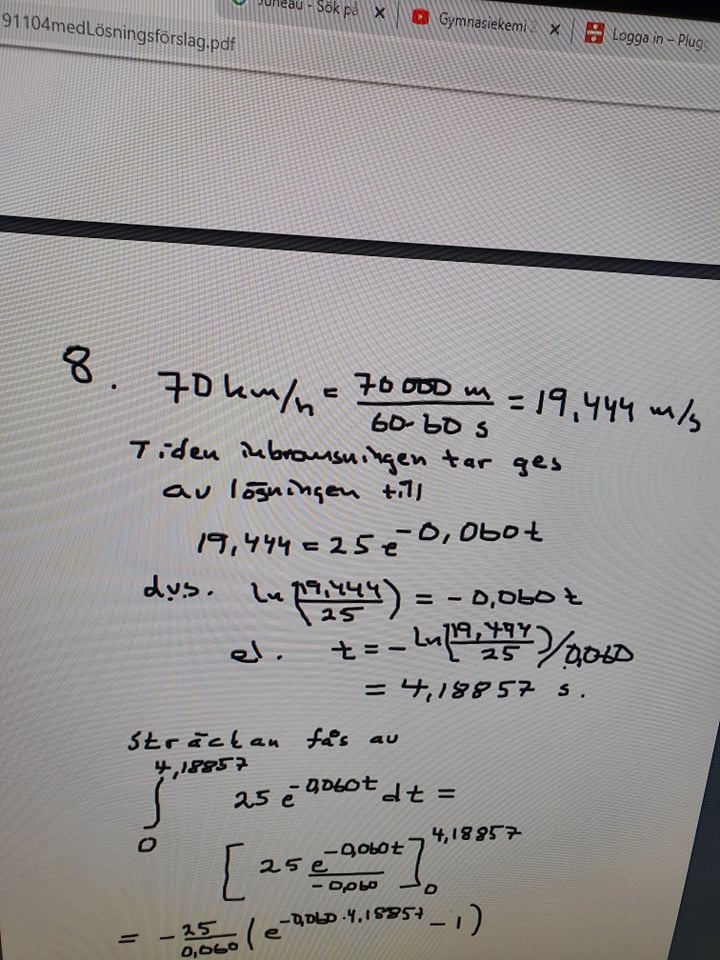 Juneau - Sök på
Gymnasiekemi 2
Logga in – Plugg
91104medLösningsförslag.pdf
8. 70 km/h = 70 000 m / 60·60 s = 19,444 m/s
Tiden inbromsningen tar ges
av lösningen till
19,444 = 25 e^-0,060t
dvs. ln(19,444/25) = -0,060 t
el. t = -ln(19,444/25)/0,060
= 4,18857 s.
Sträckan fås av
∫_0^4,18857 25 e^-0,060t dt =
[25 e^-0,060t / -0,060]_0^4,18857
= -25/0,060 (e^-0,060·4,18857 - 1)